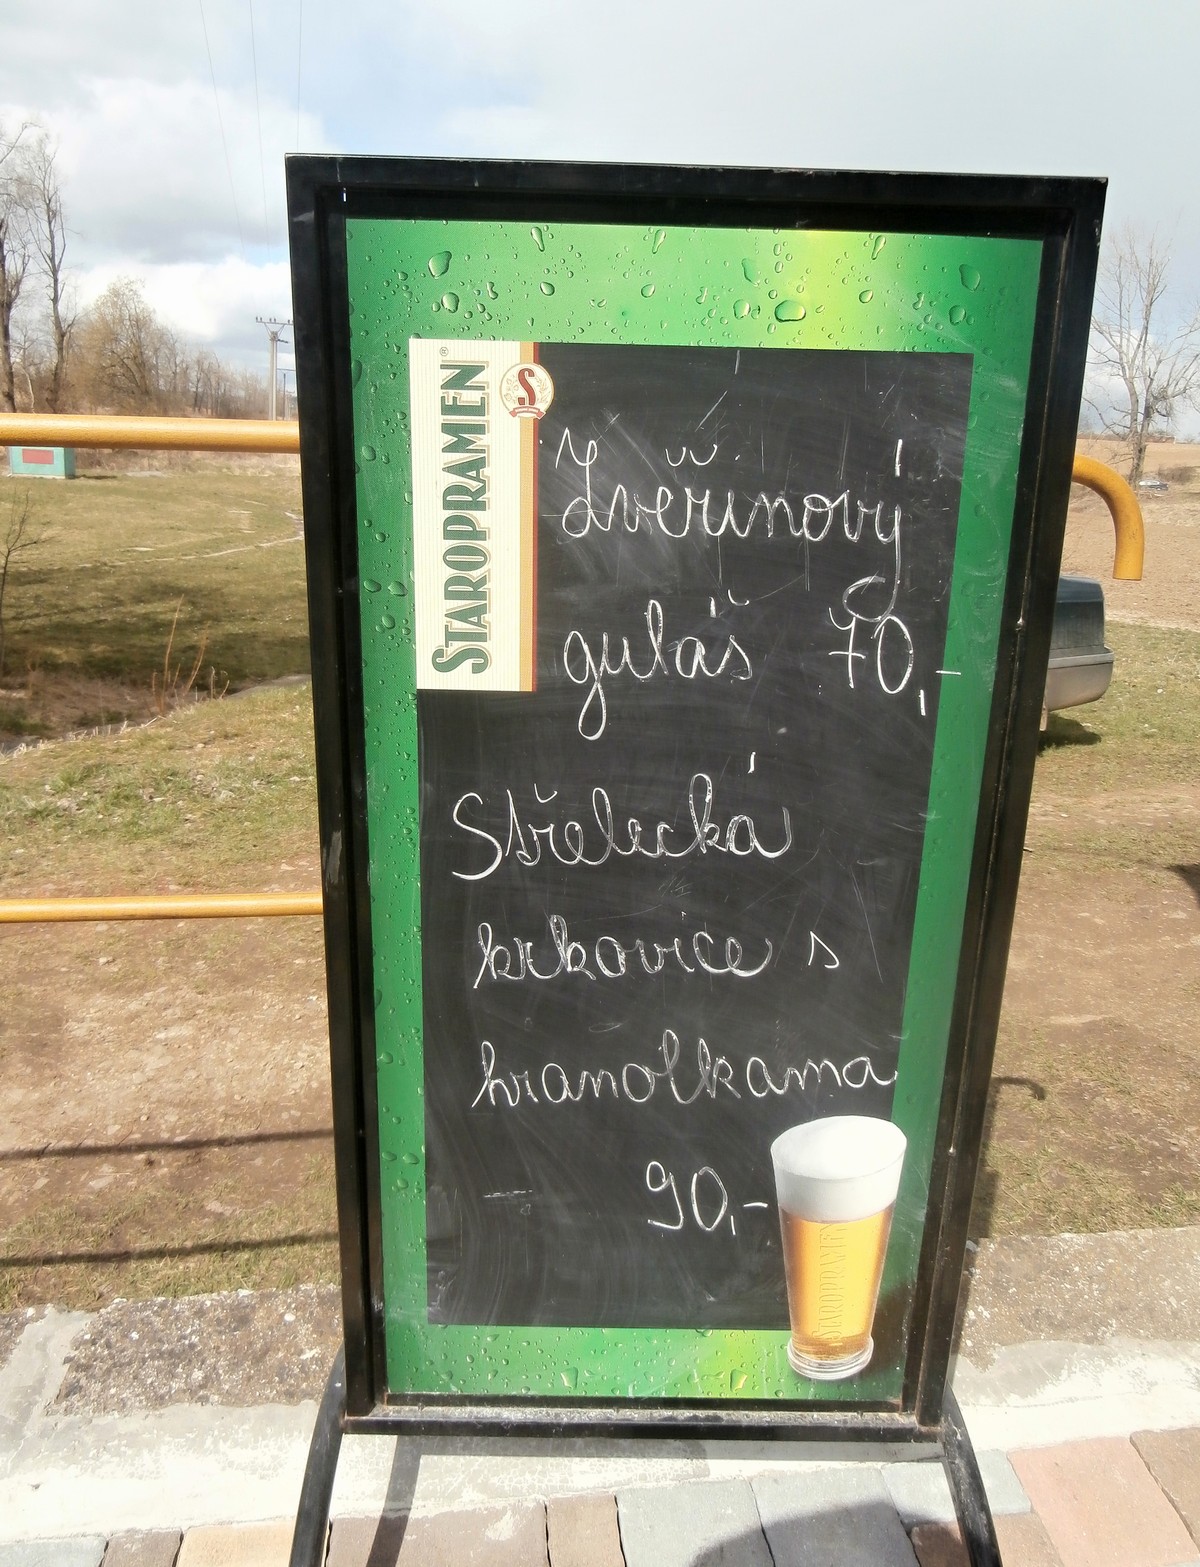 STAROPRAMEN®
S
Zvěřinový
guláš 70,-
Střelecká
krkovice s
hranolkama
90,-
STAROPRAMEN